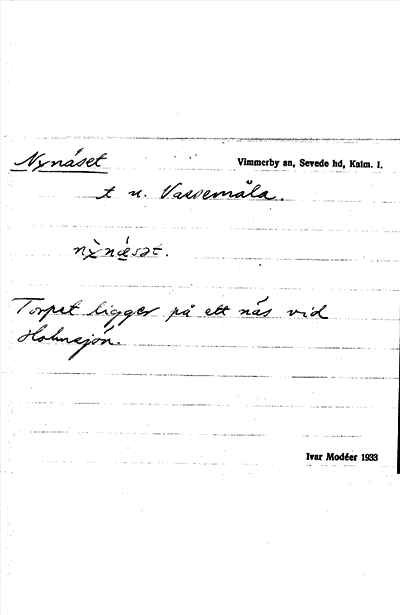 Nynäset
Vimmerby sn, Sevede hd, Kalm. l.
t u. Vassemåla.
Torpet ligger på ett näs vid
Holmsjön.
Ivar Modéer 1933